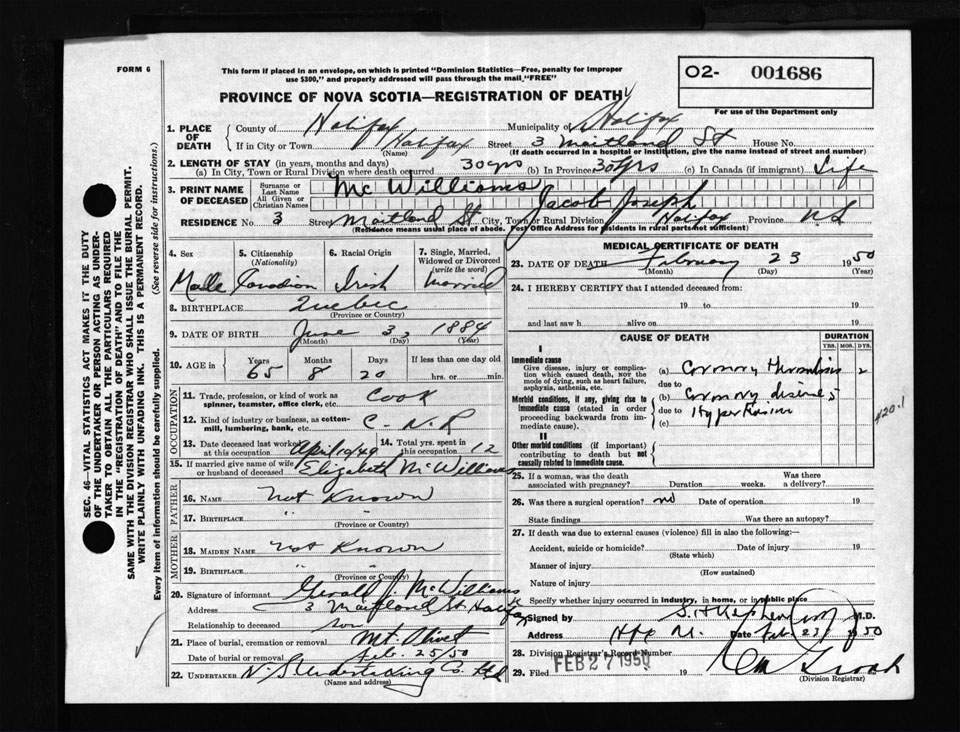 FORM 6
This form if placed in an envelope, on which is printed "Dominion Statistics—Free, penalty for improper
use $300," and properly addressed will pass through the mail "FREE"
PROVINCE OF NOVA SCOTIA—REGISTRATION OF DEATH
O2- 001686
For use of the Department only
1. PLACE OF DEATH
County of Halifax Municipality of Halifax
If in City or Town Halifax Street 3 Maitland St House No.
(Name) (If death occurred in a hospital or institution, give the name instead of street and number)
2. LENGTH OF STAY (in years, months and days)
(a) In City, Town or Rural Division where death occurred 30 yrs (b) In Province 30 yrs (c) In Canada (if immigrant) Life
3. PRINT NAME OF DECEASED
Surname or Last Name Mc Williams
All Given or Christian Names Jacob Joseph
RESIDENCE No. 3 Street Maitland St City, Town or Rural Division Halifax Province N.S
(Residence means usual place of abode. Post Office Address for residents in rural parts not sufficient)
4. Sex 5. Citizenship (Nationality) 6. Racial Origin 7. Single, Married, Widowed or Divorced (write the word)
Male Canadian Irish Married
8. BIRTHPLACE Quebec
(Province or Country)
9. DATE OF BIRTH June 3, 1884
(Month) (Day) (Year)
10. AGE in Years Months Days If less than one day old
65 8 20 hrs. or min.
OCCUPATION
11. Trade, profession, or kind of work as spinner, teamster, office clerk, etc. Cook
12. Kind of industry or business, as cotton-mill, lumbering, bank, etc. C-N.R
13. Date deceased last worked at this occupation April 1949 14. Total yrs. spent in this occupation 12
15. If married give name of wife or husband of deceased Elizabeth McWilliams
FATHER
16. NAME not Known
17. BIRTHPLACE " "
(Province or Country)
MOTHER
18. MAIDEN NAME not Known
19. BIRTHPLACE " "
(Province or Country)
20. Signature of informant Gerald J. McWilliams
Address 3 Maitland St. Halifax
Relationship to deceased son
21. Place of burial, cremation or removal Mt. Olivet
Date of burial or removal Feb. 25/50
22. UNDERTAKER N.S Undertaking Co. Ltd
(Name and address)
MEDICAL CERTIFICATE OF DEATH
23. DATE OF DEATH February 23 1950
(Month) (Day) (Year)
24. I HEREBY CERTIFY that I attended deceased from:
19 to 19
and last saw h alive on 19
CAUSE OF DEATH DURATION
YRS. MOS. DYS.
I
Immediate cause
Give disease, injury or complication which caused death, not the mode of dying, such as heart failure, asphyxia, asthenia, etc.
(a) Coronary Thrombosis 2
due to
Morbid conditions, if any, giving rise to immediate cause (stated in order proceeding backwards from immediate cause).
(b) Coronary disease 5
due to Hypertension
(c)
420.1
II
Other morbid conditions (if important) contributing to death but not causally related to immediate cause.
25. If a woman, was the death associated with pregnancy? Duration weeks. Was there a delivery?
26. Was there a surgical operation? no Date of operation 19
State findings Was there an autopsy?
27. If death was due to external causes (violence) fill in also the following:—
Accident, suicide or homicide? Date of injury 19
(State which)
Manner of injury
(How sustained)
Nature of injury
Specify whether injury occurred in industry, in home, or in public place
Signed by M.D.
Address Hfx N. Date Feb. 23/ 1950
28. Division Registrar's Record Number
FEB 27 1950
29. Filed 19
(Division Registrar)
SEC. 46—VITAL STATISTICS ACT MAKES IT THE DUTY
OF THE UNDERTAKER OR PERSON ACTING AS UNDER-
TAKER TO OBTAIN ALL THE PARTICULARS REQUIRED
IN THE "REGISTRATION OF DEATH" AND TO FILE THE
SAME WITH THE DIVISION REGISTRAR WHO SHALL ISSUE THE BURIAL PERMIT.
WRITE PLAINLY WITH UNFADING INK. THIS IS A PERMANENT RECORD.
Every item of information should be carefully supplied. (See reverse side for instructions.)